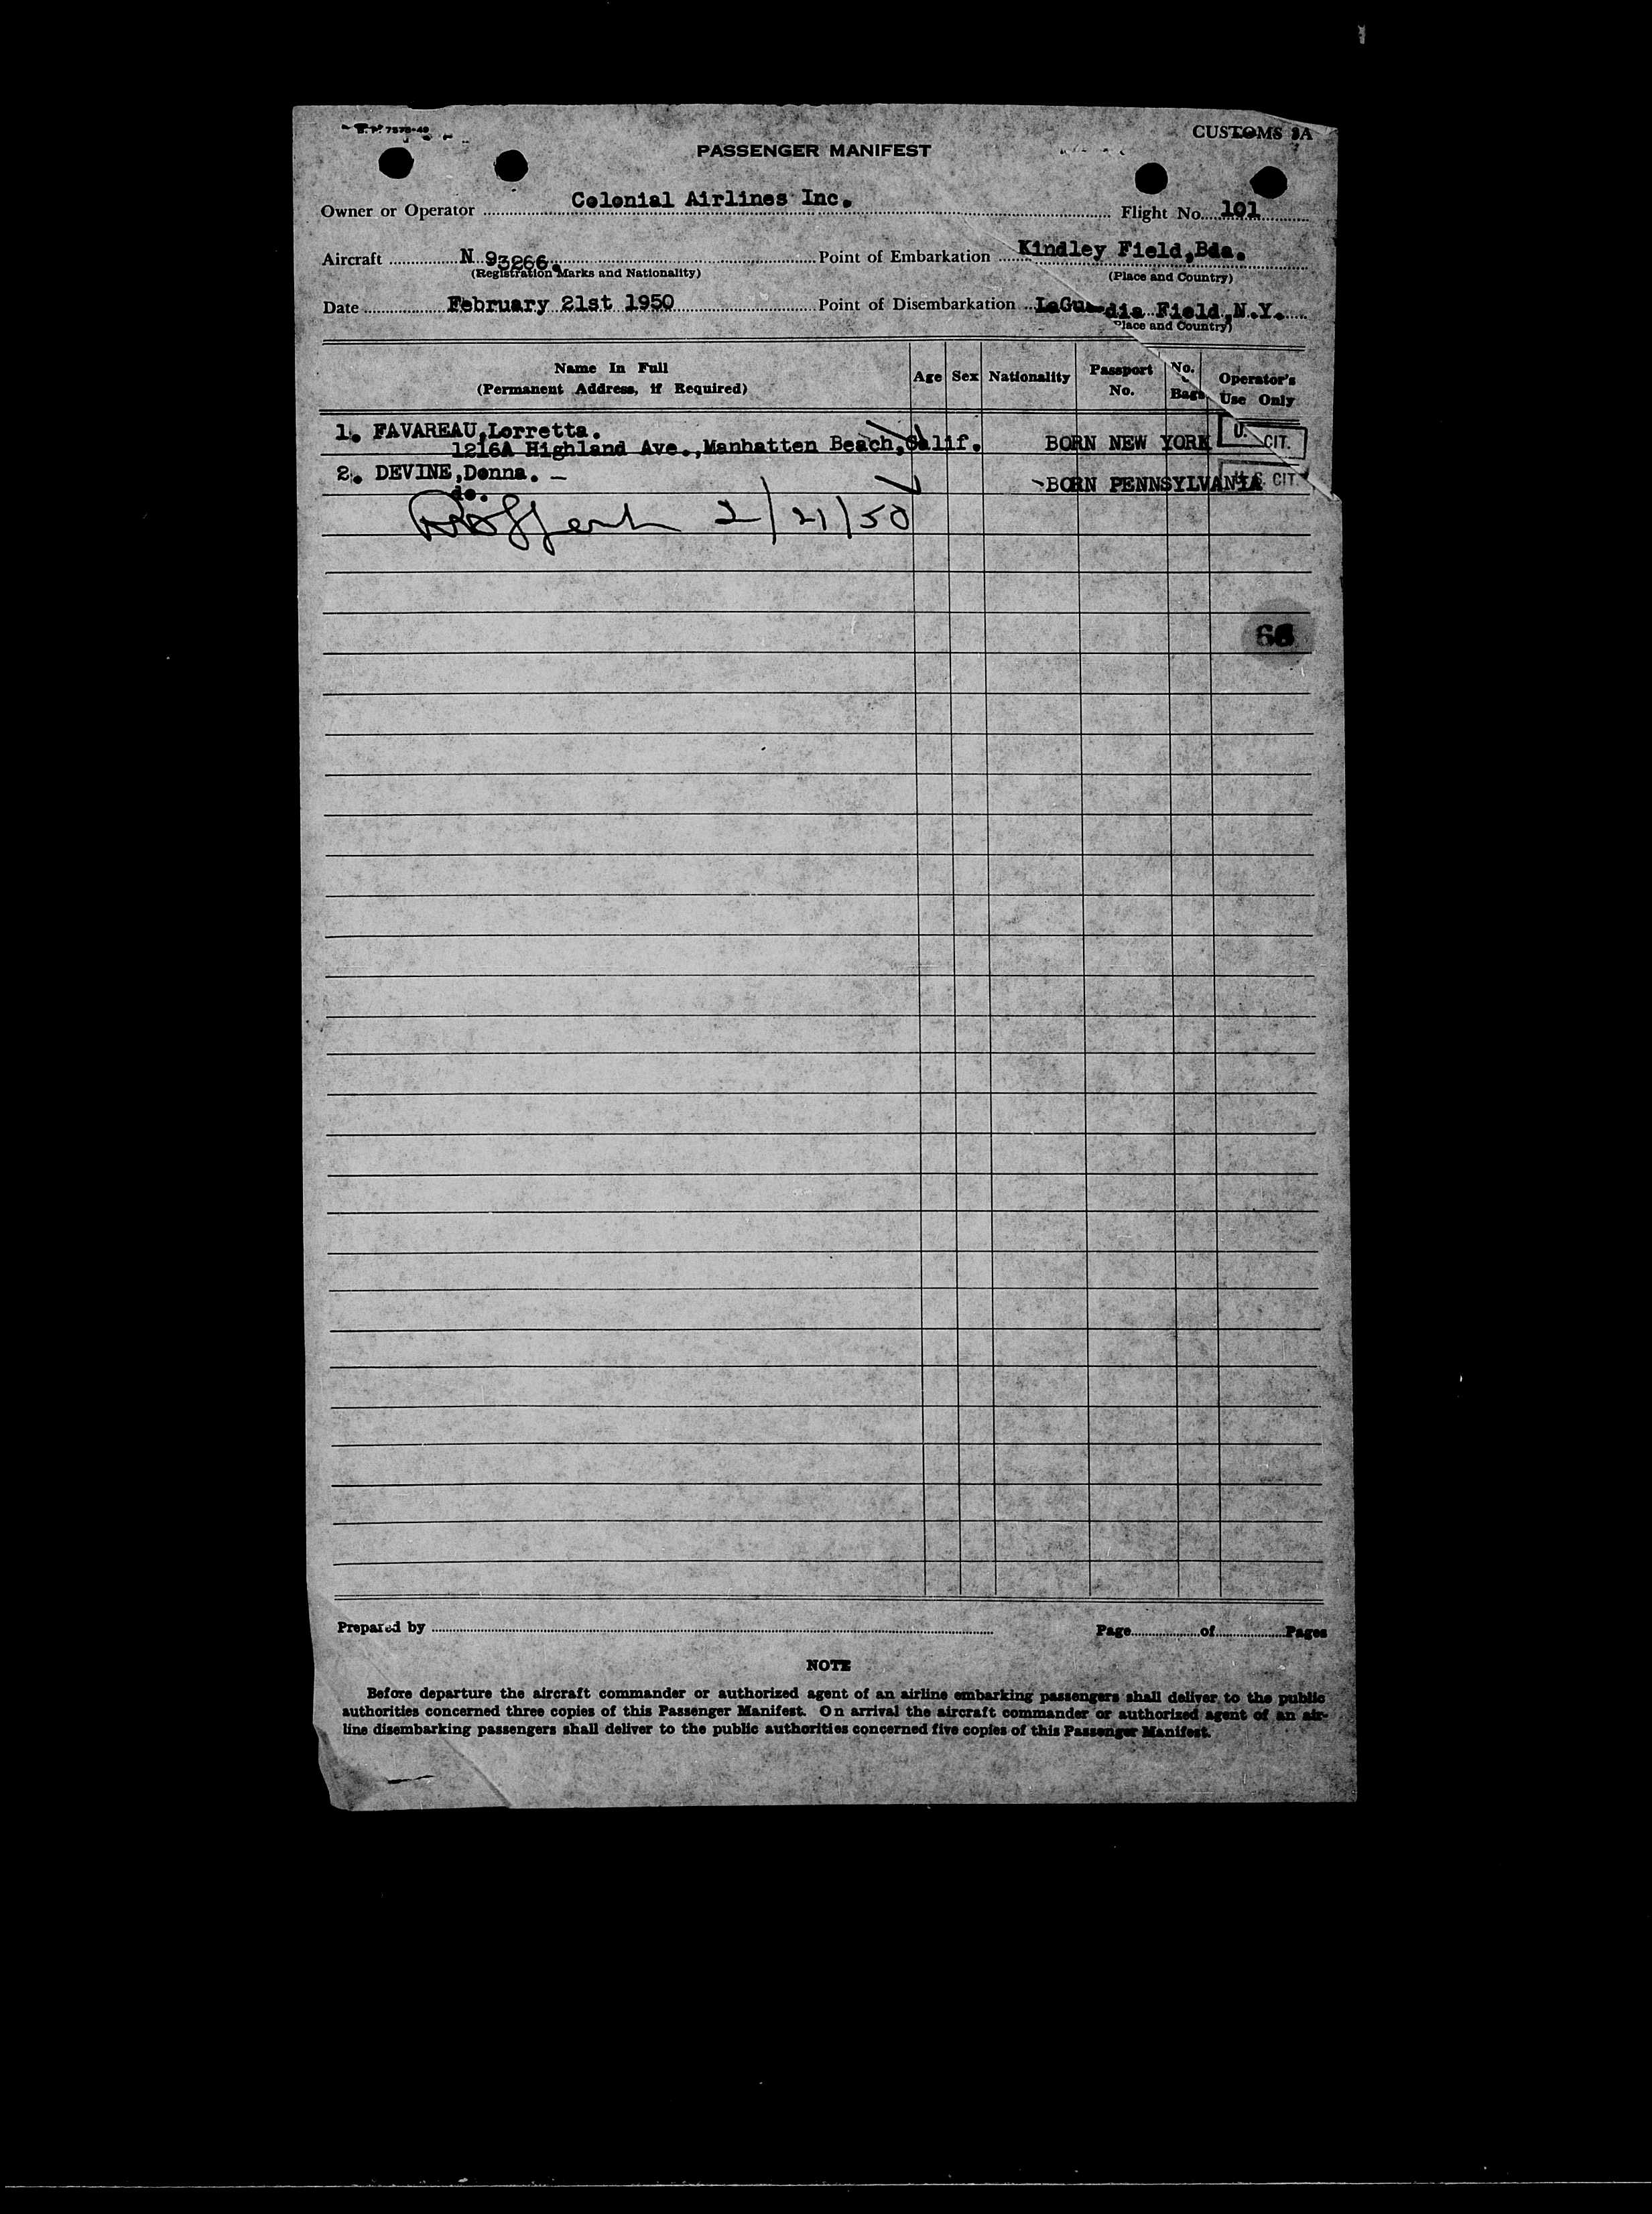 7575-49
CUSTOMS 2A
PASSENGER MANIFEST
Owner or Operator Colonial Airlines Inc. Flight No. 101
Aircraft N 93266. Point of Embarkation Kindley Field,Bda.
(Registration Marks and Nationality) (Place and Country)
Date February 21st 1950 Point of Disembarkation LaGuardia Field,N.Y.
Place and Country)
Name In Full (Permanent Address, if Required) Age Sex Nationality Passport No. No. Bags Operator's Use Only
1. FAVAREAU,Lorretta.
1216A Highland Ave.,Manhatten Beach,Calif. BORN NEW YORK U. CIT.
2. DEVINE,Donna. – BORN PENNSYLVANIA U.S. CIT.
do.
2/21/50
66
Prepared by Page of Pages
NOTE
Before departure the aircraft commander or authorized agent of an airline embarking passengers shall deliver to the public
authorities concerned three copies of this Passenger Manifest. On arrival the aircraft commander or authorized agent of an air-
line disembarking passengers shall deliver to the public authorities concerned five copies of this Passenger Manifest.